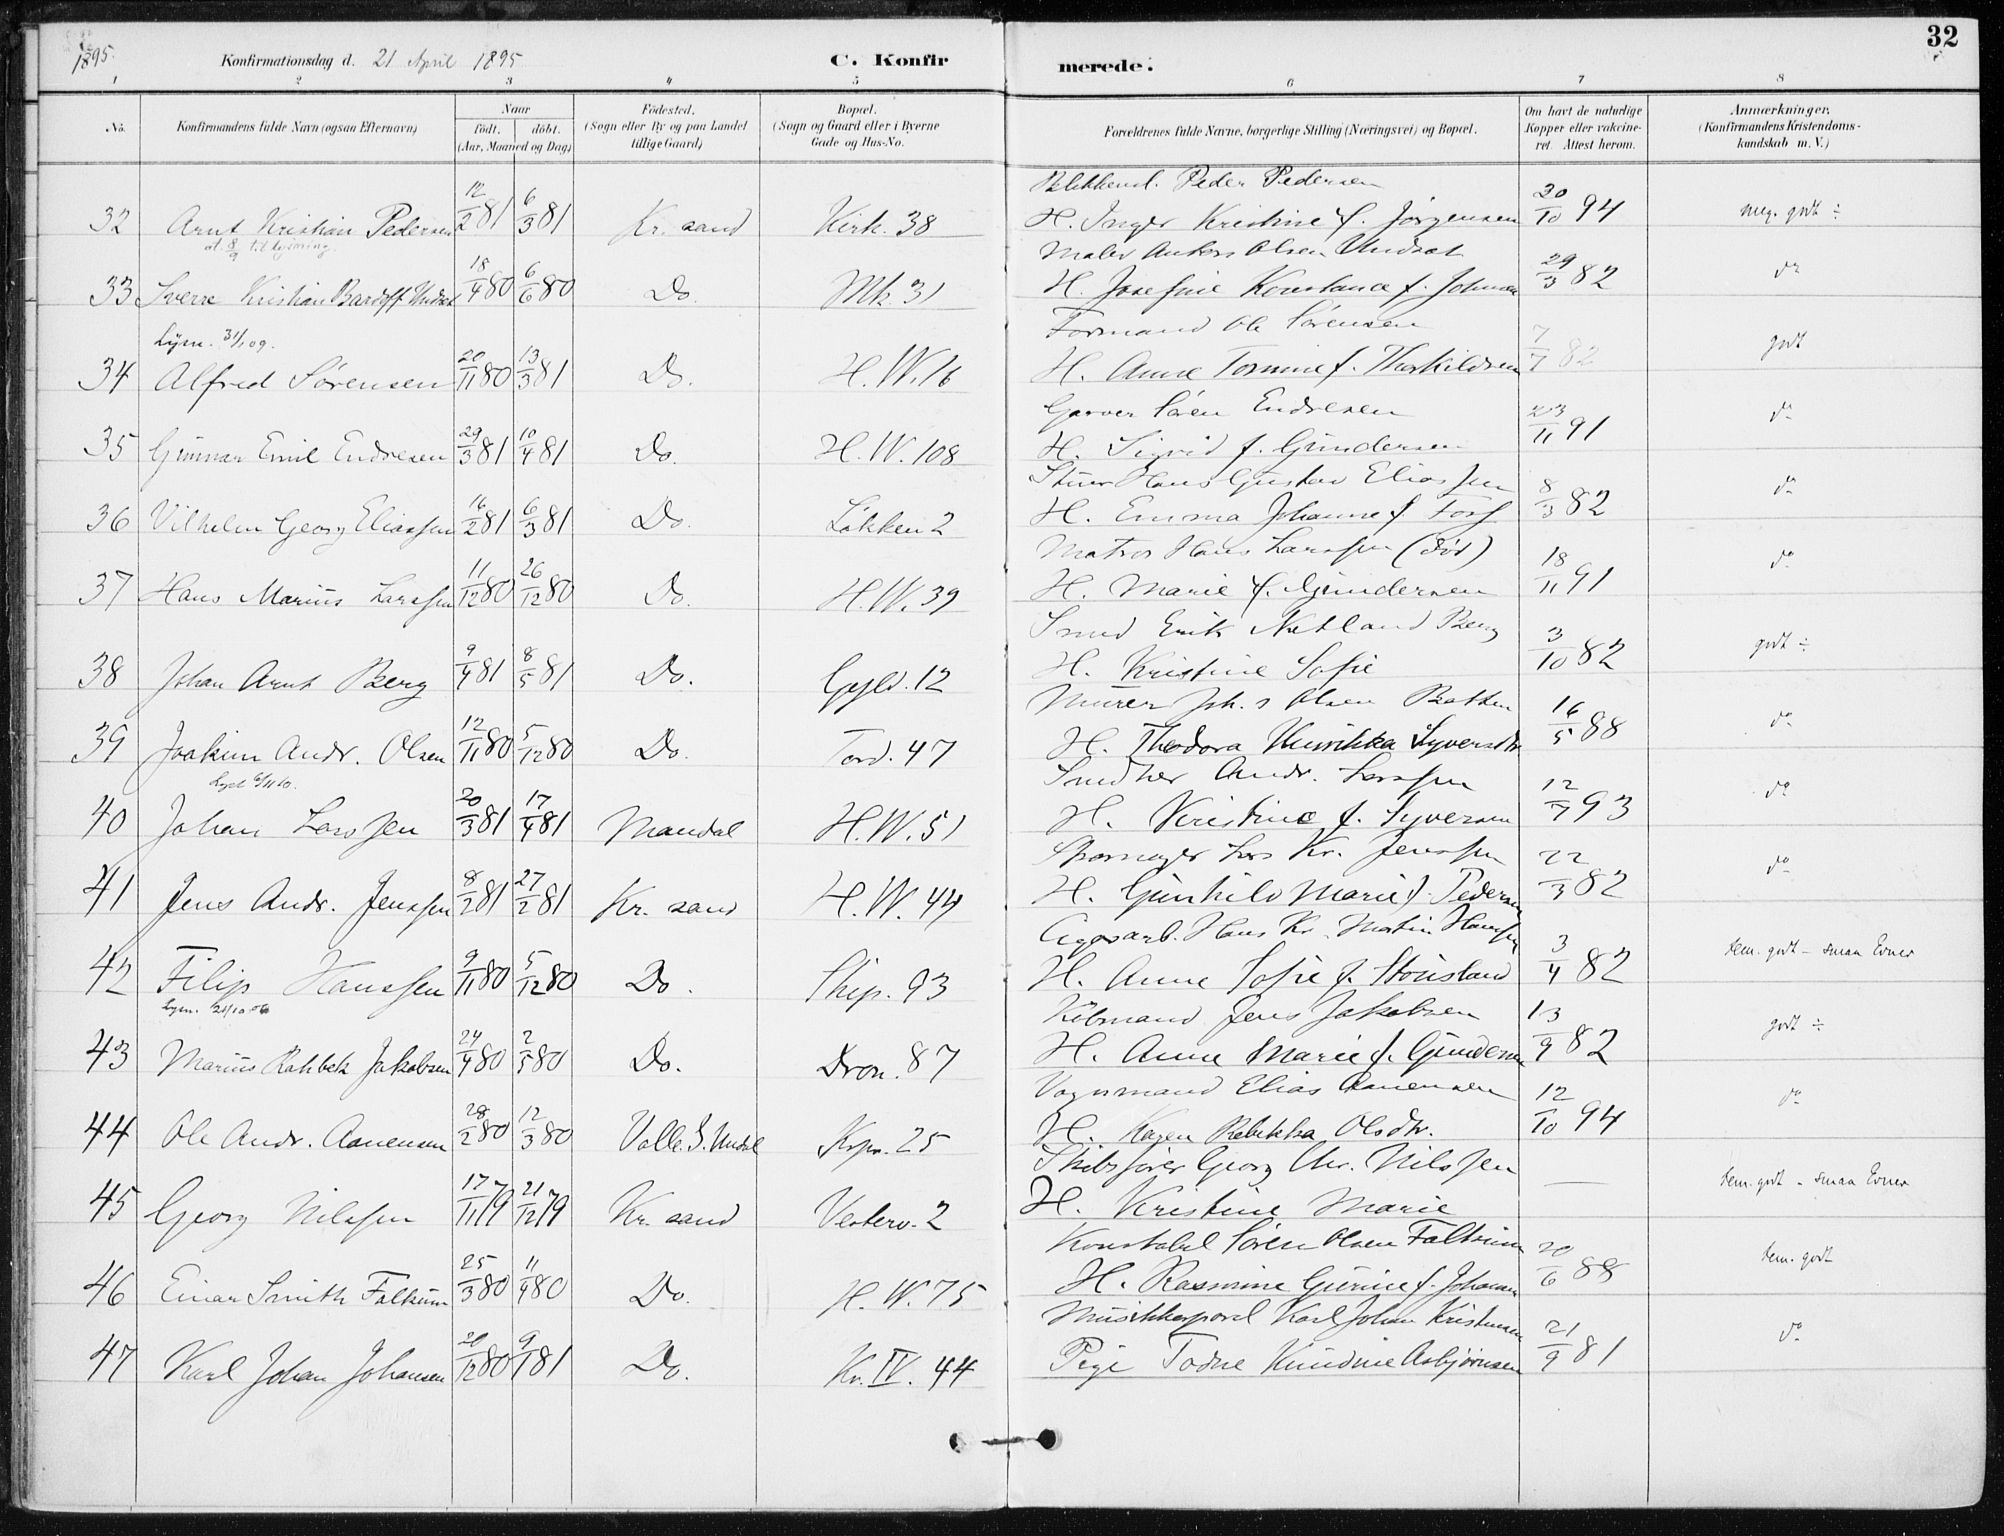 1895.
Konfirmationsdag d. 21 April 1895
C. Konfirmerede.
32
1 2 3 4 5 6 7 8
No.
Konfirmandens fulde Navn (ogsaa Efternavn)
Naar
födt. döbt.
(Aar, Maaned og Dag)
Födested.
(Sogn eller By og paa Landet tillige Gaard)
Bopæl.
(Sogn og Gaard eller i Byerne Gade og Hus-No.
Forældrenes fulde Navne, borgerlige Stilling (Næringsvei) og Bopæl.
Om havt de naturlige Kopper eller vakcineret. Attest herom.
Anmærkninger.
(Konfirmandens Kristendomskundskab m. V.)
Peder Pedersen
32 Arnt Kristian Pedersen 12/2 81 6/3 81 Kr. sand Kirk. 38 H. Inger Kristine f. Jörgensen 30/10 94 meg. godt ÷
at. 8/9 til lysning.
Maler Olsen Undsat
33 Sverre Kristian 18/4 80 6/6 80 Do. Mk. 31 H. Josefine Konstance f. 29/3 82 do
Lysn. 31/1 09.
Formand Ole Sörensen
34 Alfred Sörensen 20/11 80 13/3 81 Do. H. W. 16 H. Anne Tomine f. Therkildsen 7/7 82 godt
Garver Sören Endresen
35 Gunnar Emil Endresen 29/3 81 10/4 81 Do. H. W. 108 H. Sigrid f. Gundersen 23/11 91 do
Hans Gustav Eliassen
36 Vilhelm Georg Eliassen 16/2 81 6/3 81 Do. Lökken 2 H. Emma Johanne f. 8/3 82 do
Matros Hans Larssen (död)
37 Hans Marius Larssen 11/12 80 26/12 80 Do. H. W. 39 H. Marie f. Gundersen 18/11 91 do
Smed Erik Netland Berg
38 Johan Arnt Berg 9/4 81 8/5 81 Do. Gyld. 12 H. Kristine Sofie 3/10 82 godt ÷
Murer Joh.s Olsen
39 Joakim Andr. Olsen 12/11 80 5/12 80 Do. Tord. 47 H. Theodora Henrikka Syversdtr. 16/5 88 do
Andr. Larssen
40 Johan Larssen 20/3 81 17/4 81 Mandal H. W. 51 H. Kristine f. Syversen 12/7 93 do
Lars Kr. Jenssen
41 Jens Andr. Jenssen 8/2 81 27/2 81 Kr. sand H. W. 44 H. Gunhild Marie f. Pedersen 22/3 82 do
Hans Kr. Martin Hanssen
42 Filip Hanssen 9/11 80 5/12 80 Do. Skip. 93 H. Anne Sofie f. 3/4 82 tem. godt - smaa Evner
Lysn.
Köbmand Jens Jakobsen
43 Marius Rahbek Jakobsen 24/4 80 2/5 80 Do. Dron. 87 H. Anne Marie f. Gundersen 13/9 82 godt ÷
Vognmand Elias Aanensen
44 Ole Andr. Aanensen 28/2 80 12/3 80 Valle S. Undal Krpr. 25 H. Karen Rebekka Olsdtr. 12/10 94 do
Skibsförer Georg Chr. Nilssen
45 Georg Nilssen 17/11 79 21/12 79 Kr. sand Vesterv. 2 H. Kristine Marie — tem. godt - smaa Evner
Konstabel Sören Olsen Falkum
46 Einar Smith Falkum 25/3 80 11/4 80 Do. H. W. 75 H. Rasmine Gurine f. Johansen 20/6 88 tem. godt
Karl Johan Kristensen
47 Karl Johan Johansen 20/12 80 9/1 81 Do. Kv. IV. 44 Pige Todne Asbjörnsen 21/9 81 do